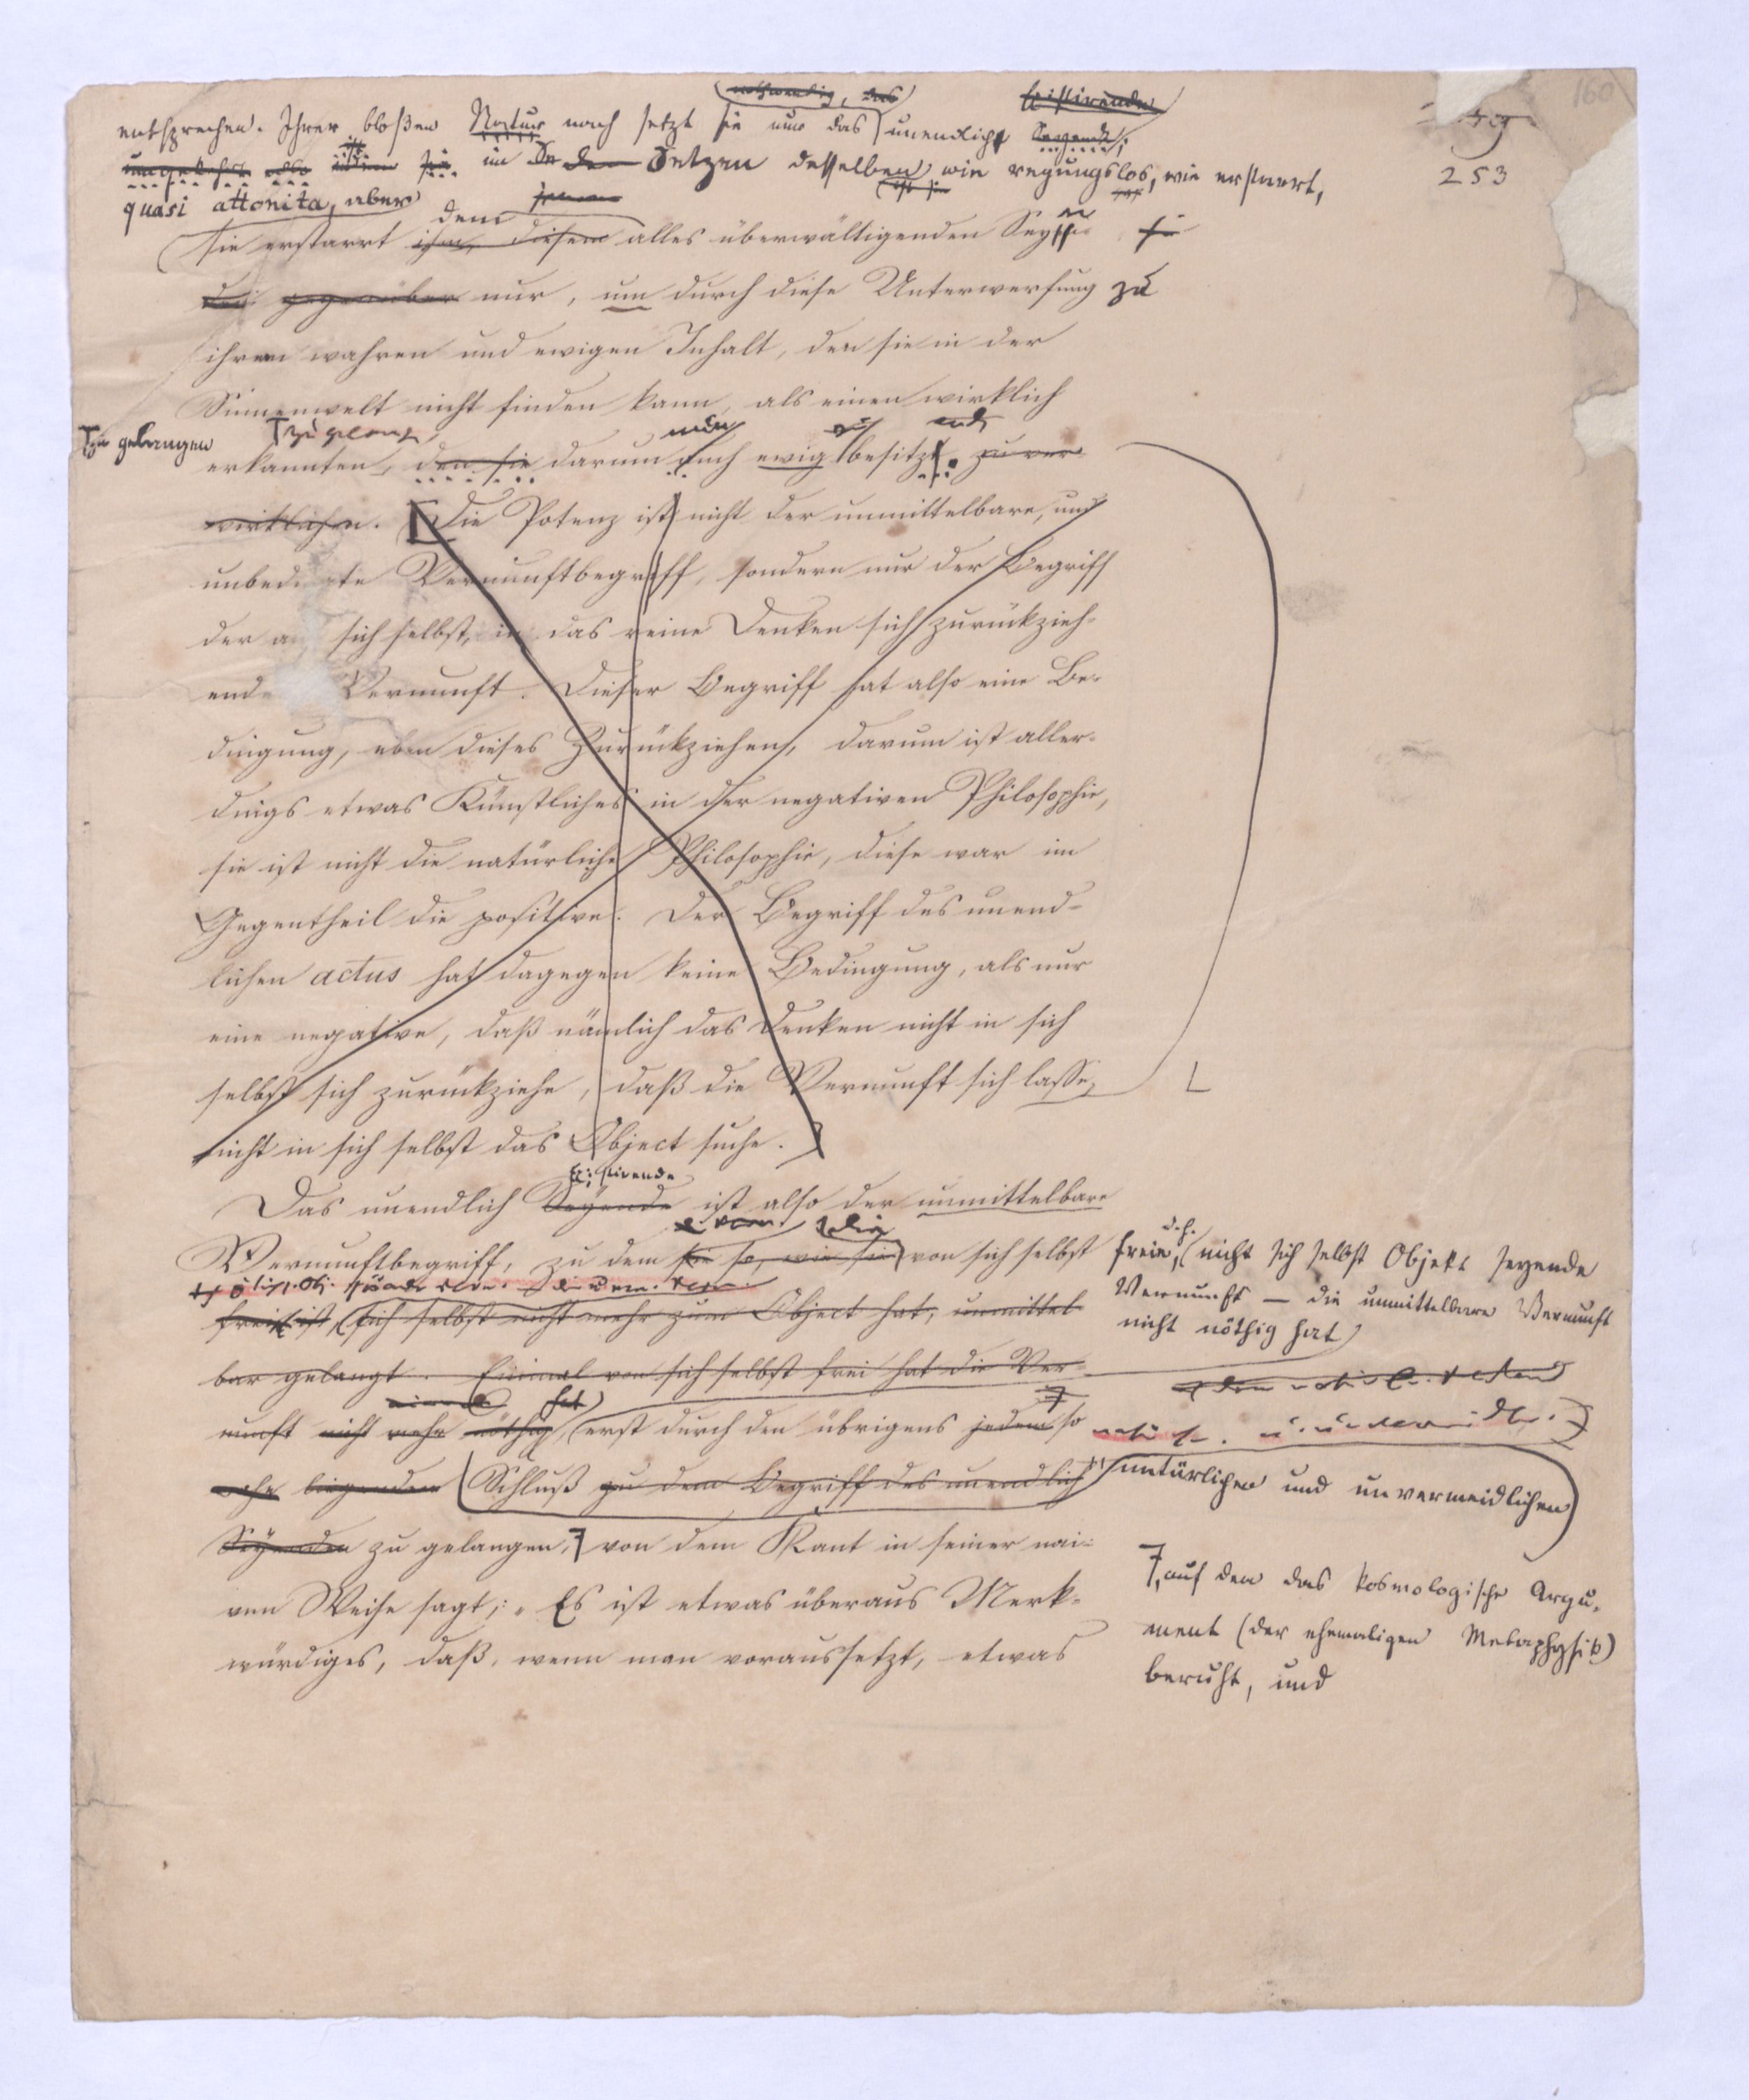 160
253
nothwendig, das
Existirende
entsprechen. Ihrer bloßen Natur nach setzt sie nur das unendlich Seyende;
umgekehrt also ist sie im Setzen desselben wie regungslos, wie erstarrt,
ist sie
quasi attonita, aber
dem
sie erstarrt ihm, diesem alles überwältigenden Seyn
gegenüber nur, um durch diese Unterwerfung zu
ihrem wahren und ewigen Inhalt, den sie in der
Sinnenwelt nicht finden kann, als einen wirklich
zu gelangen
erkannten, den sie darum auch ewig besitzt. zu ver-
wirklichen. Die Potenz ist nicht der unmittelbare, und
unbedingte Vernunftbegriff, sondern nur der Begriff
der a sich selbst, in das reine Denken sich zurückzieh-
end Vernunft. Dieser Begriff hat also eine Be-
dingung, eben dieses Zurückziehen, darum ist aller-
dings etwas Künstliches in der negativen Philosophie,
sie ist nicht die natürliche Philosophie, diese war im
Gegentheil die positive. Der Begriff des unend-
lichen actus hat dagegen keine Bedingung, als nur
eine negative, daß nämlich das Denken nicht in sich
selbst sich zurückziehe, daß die Vernunft sich lasse,
nicht in sich selbst das Object suche.
Existirende
Das unendlich Seyende ist also der unmittelbare
Vernunftbegriff, zu dem sie so, wie sie von sich selbst
frei ist, sich selbst nicht mehr zum Object hat, unmittel-
bar gelangt. Einmal von sich selbst frei hat die Ver-
hat
nunft nicht mehr nöthig erst durch den übrigens jedem so
nahe liegenden Schluß zu dem Begriff des unendlich
Seyenden zu gelangen, von dem Kant in seiner nai-
ven Weise sagt: „Es ist etwas überaus Merk-
würdiges, daß, wenn man voraussetzt, etwas
d.h.
freie, (nicht sich selbst Objekt seyende
Vernunft — die unmittelbare Vernunft
nicht nöthig hat
natürlichen und unvermeidlichen
, auf dem das kosmologische Argu-
ment (der ehemaligen Metaphysik)
beruht, und